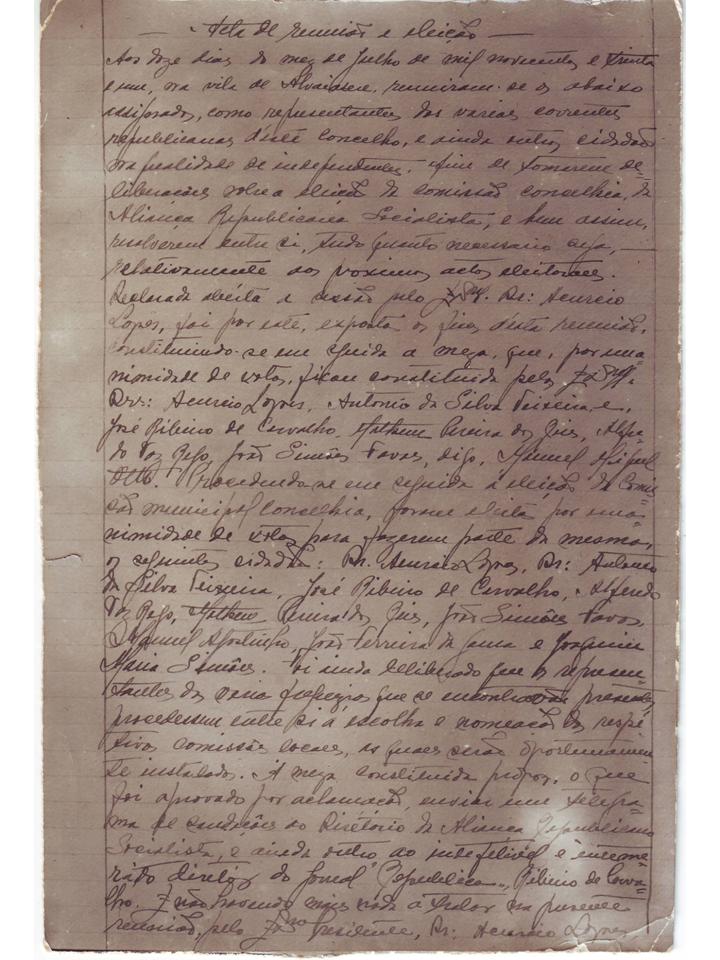 — Acta de reunião e eleição —
Aos doze dias do mez de Julho de mil novecentos e trinta
e um, na vila de Alvaiazere, reuniram-se os abaixo
assignados, como representantes das varias correntes
republicanas d'este concelho, e ainda outros cidadãos
na qualidade de independentes, afim de tomarem de-
liberações sobre a eleição da comissão concelhia, da
Aliança Republicana Socialista, e bem assim,
resolverem entre si, tudo quanto necessario seja, —
relativamente aos proximos actos eleitoraes.
Declarada aberta a sessão pelo Dr: Acurcio
Lopes, foi por este, exposto os fins d'esta reunião,
constituindo-se em seguida a meza, que, por una-
nimidade de votos, ficou constituida pelos
Drs: Acurcio Lopes, Antonio da Silva Teixeira, e,
José Ribeiro de Carvalho, Matheus Pereira dos
do Vaz Rego, João Simões Favas, digo, Manuel
Procedendo-se em seguida á eleição da Comis-
são municipal concelhia, foram eleitos por una-
nimidade de votos para fazerem parte da mesma,
os seguintes cidadãos: Dr. Acurcio Lopes, Dr: Antonio
da Silva Teixeira, José Ribeiro de Carvalho, Alfredo
Vaz Rego, Matheus Pereira dos João Simões Favas,
Manuel Agostinho, João Ferreira da Gama e Joaquim
Maria Simões. Foi ainda deliberado que os represen-
tantes das varias freguezias que se encontravam presentes
procedessem entre si á escolha e nomeação das respe-
tivas comissões locaes, as quaes serão oportunamen-
te instaladas. A meza constituida propoz, o que
foi aprovado por aclamação, enviar um telegra-
ma de saudações ao Diretório da Aliança Republicana
Socialista, e ainda outro ao
director do Jornal "Republica", Ribeiro de Carva-
lho. E não havendo mais nada a tratar na presente
reunião, pelo Exmo Presidente, Dr: Acurcio Lopes,